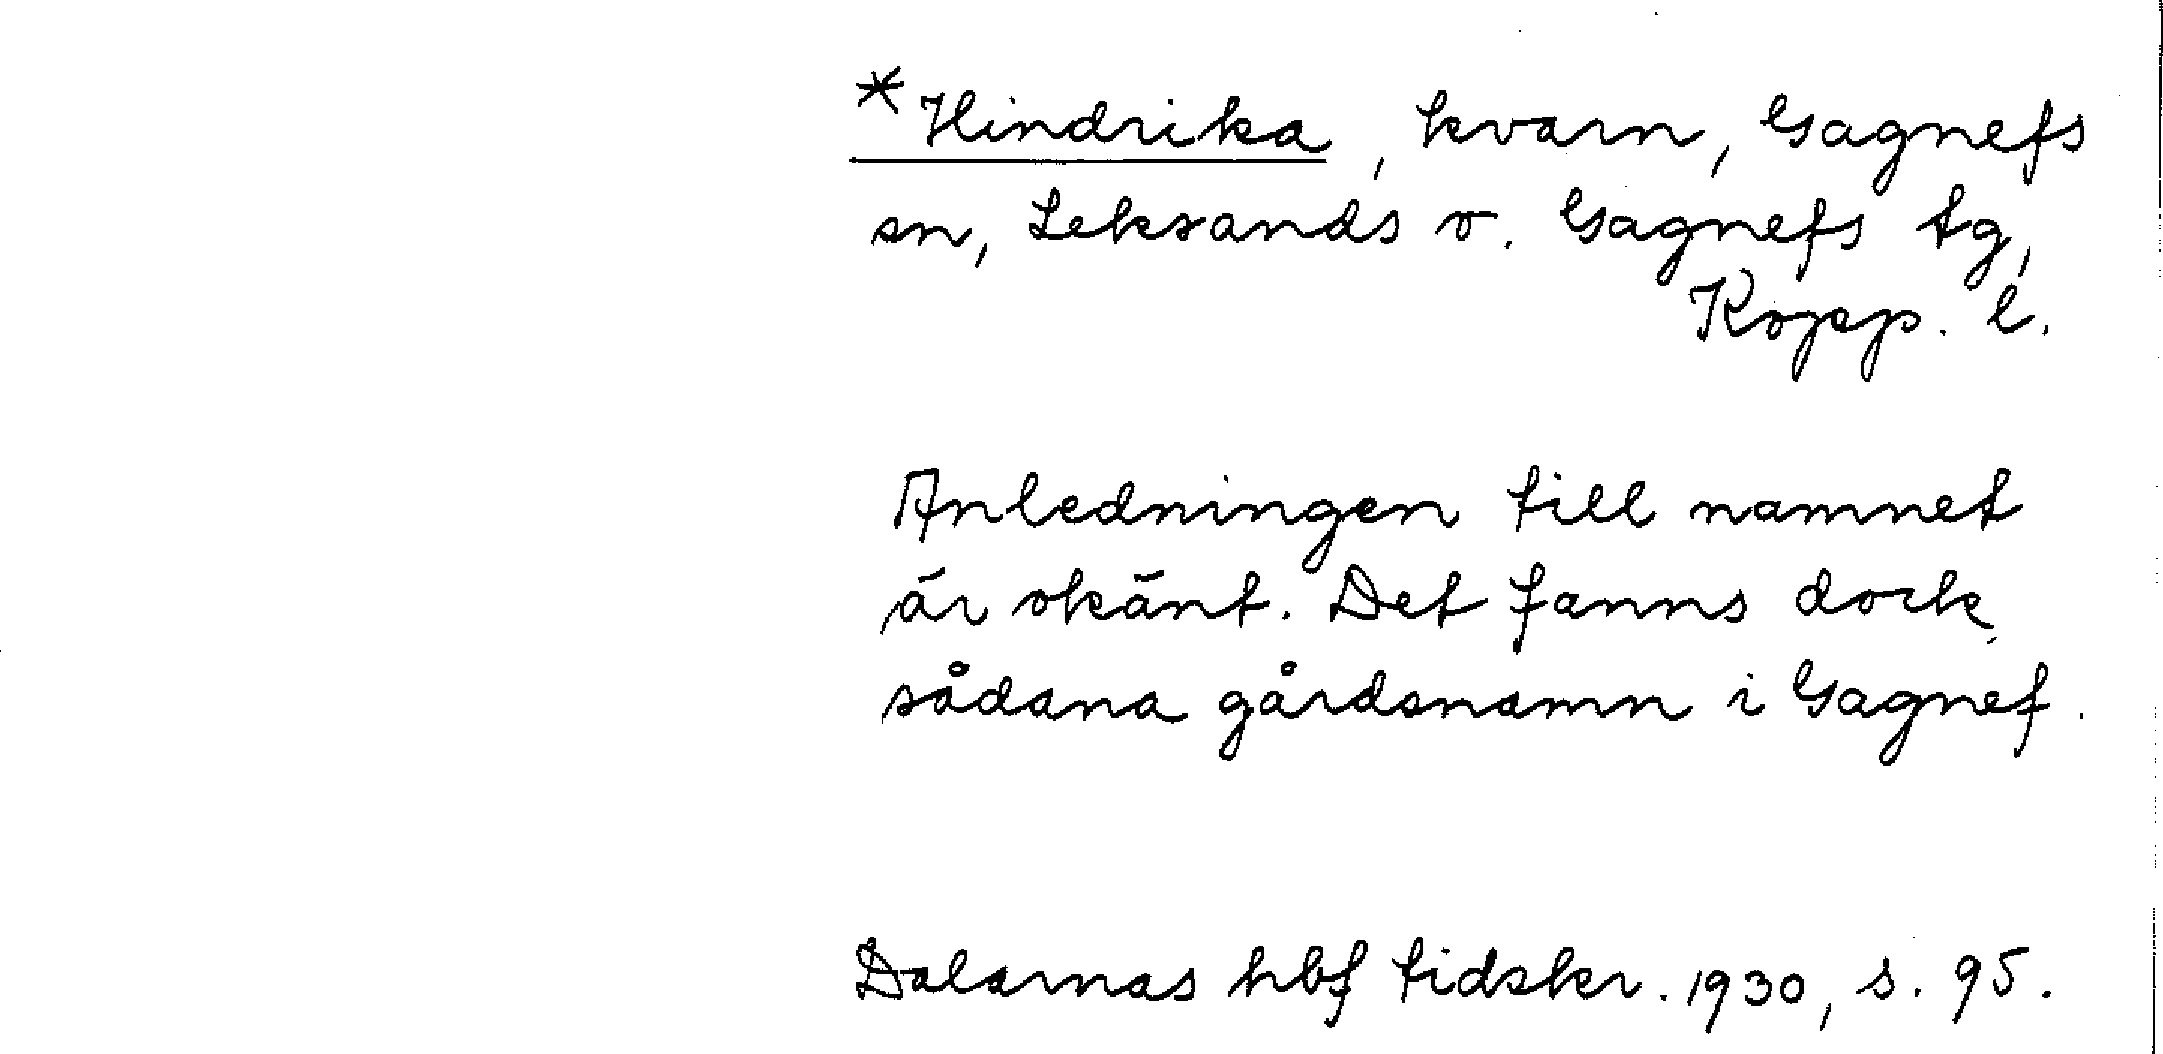 *Hindrika, kvarn, Gagnefs
sn, Leksands o. Gagnefs tg,
Kopp. l.
Anledningen till namnet
är okänt. Det fanns dock
sådana gårdsnamn i Gagnef.
Dalarnas hbf tidskr. 1930, s. 95.